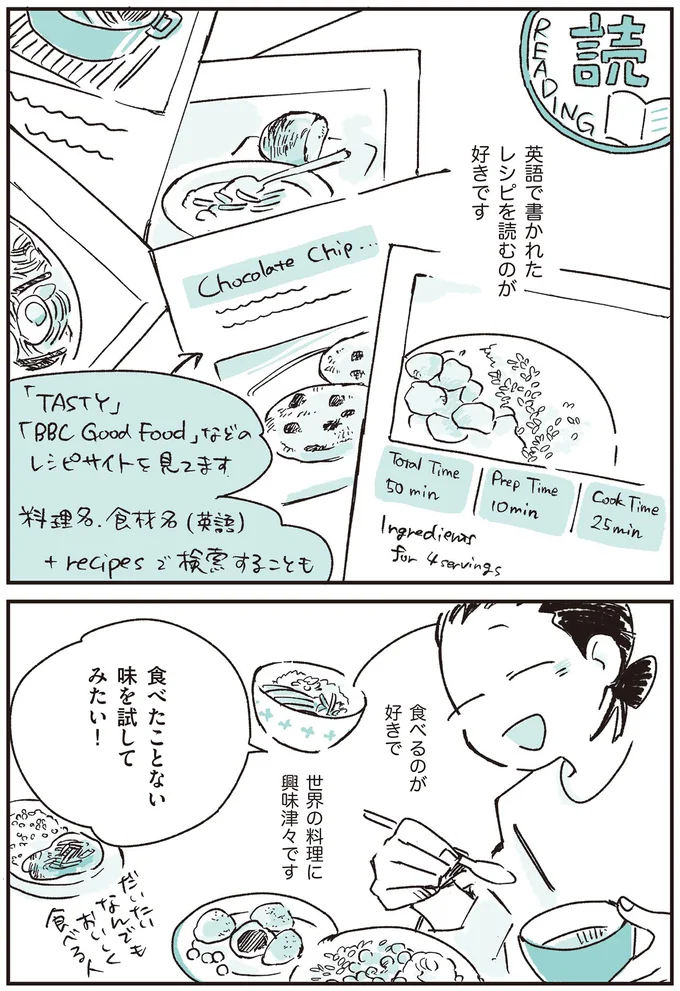 読
READING
英語で書かれた
レシピを読むのが
好きです
Chocolate Chip...
「TASTY」
「BBC Good Food」などの
レシピサイトを見てます
料理名.食材名(英語)
+ recipesで検索することも
Total Time
50 min
Prep Time
10min
Cook Time
25min
Ingredients
for 4 servings
食べるのが
好きで
世界の料理に
興味津々です
食べたことない
味を試して
みたい!
だいたい
なんでも
おいしく
食べる人